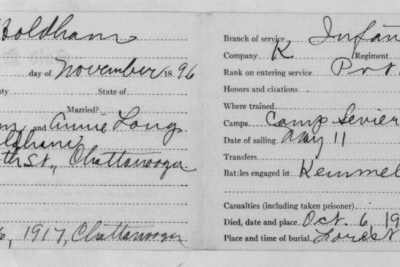 Holdham
day of November 1896
nty State of
Married?
and Annie Long
Holdham
th St., Chattanooga
6, 1917, Chattanooga
Branch of service Infan
Company K Regiment
Rank on entering service Pvt.
Honors and citations
Where trained
Camps Camp Sevier
Date of sailing May 11
Transfers
Battles engaged in Kemmel
Casualties (including taken prisoner)
Died, date and place Oct. 6, 19
Place and time of burial Forest